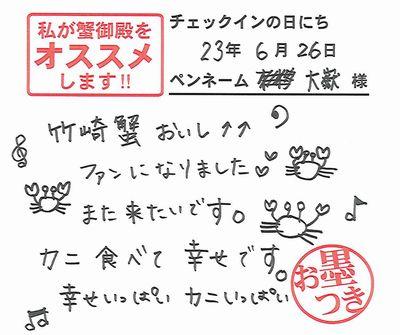 私が蟹御殿を
オススメ
します!!
チェックインの日にち
23年 6月 26日
ペンネーム 大嶽 様
竹崎蟹 おいし↑↑
ファンになりました
また来たいです。
カニ 食べて 幸せです。
幸せいっぱい カニいっぱい
お墨つき